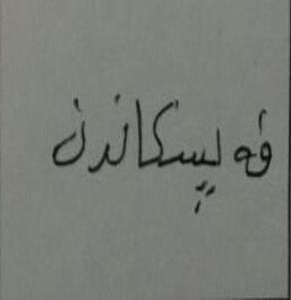 فەپسکاندن